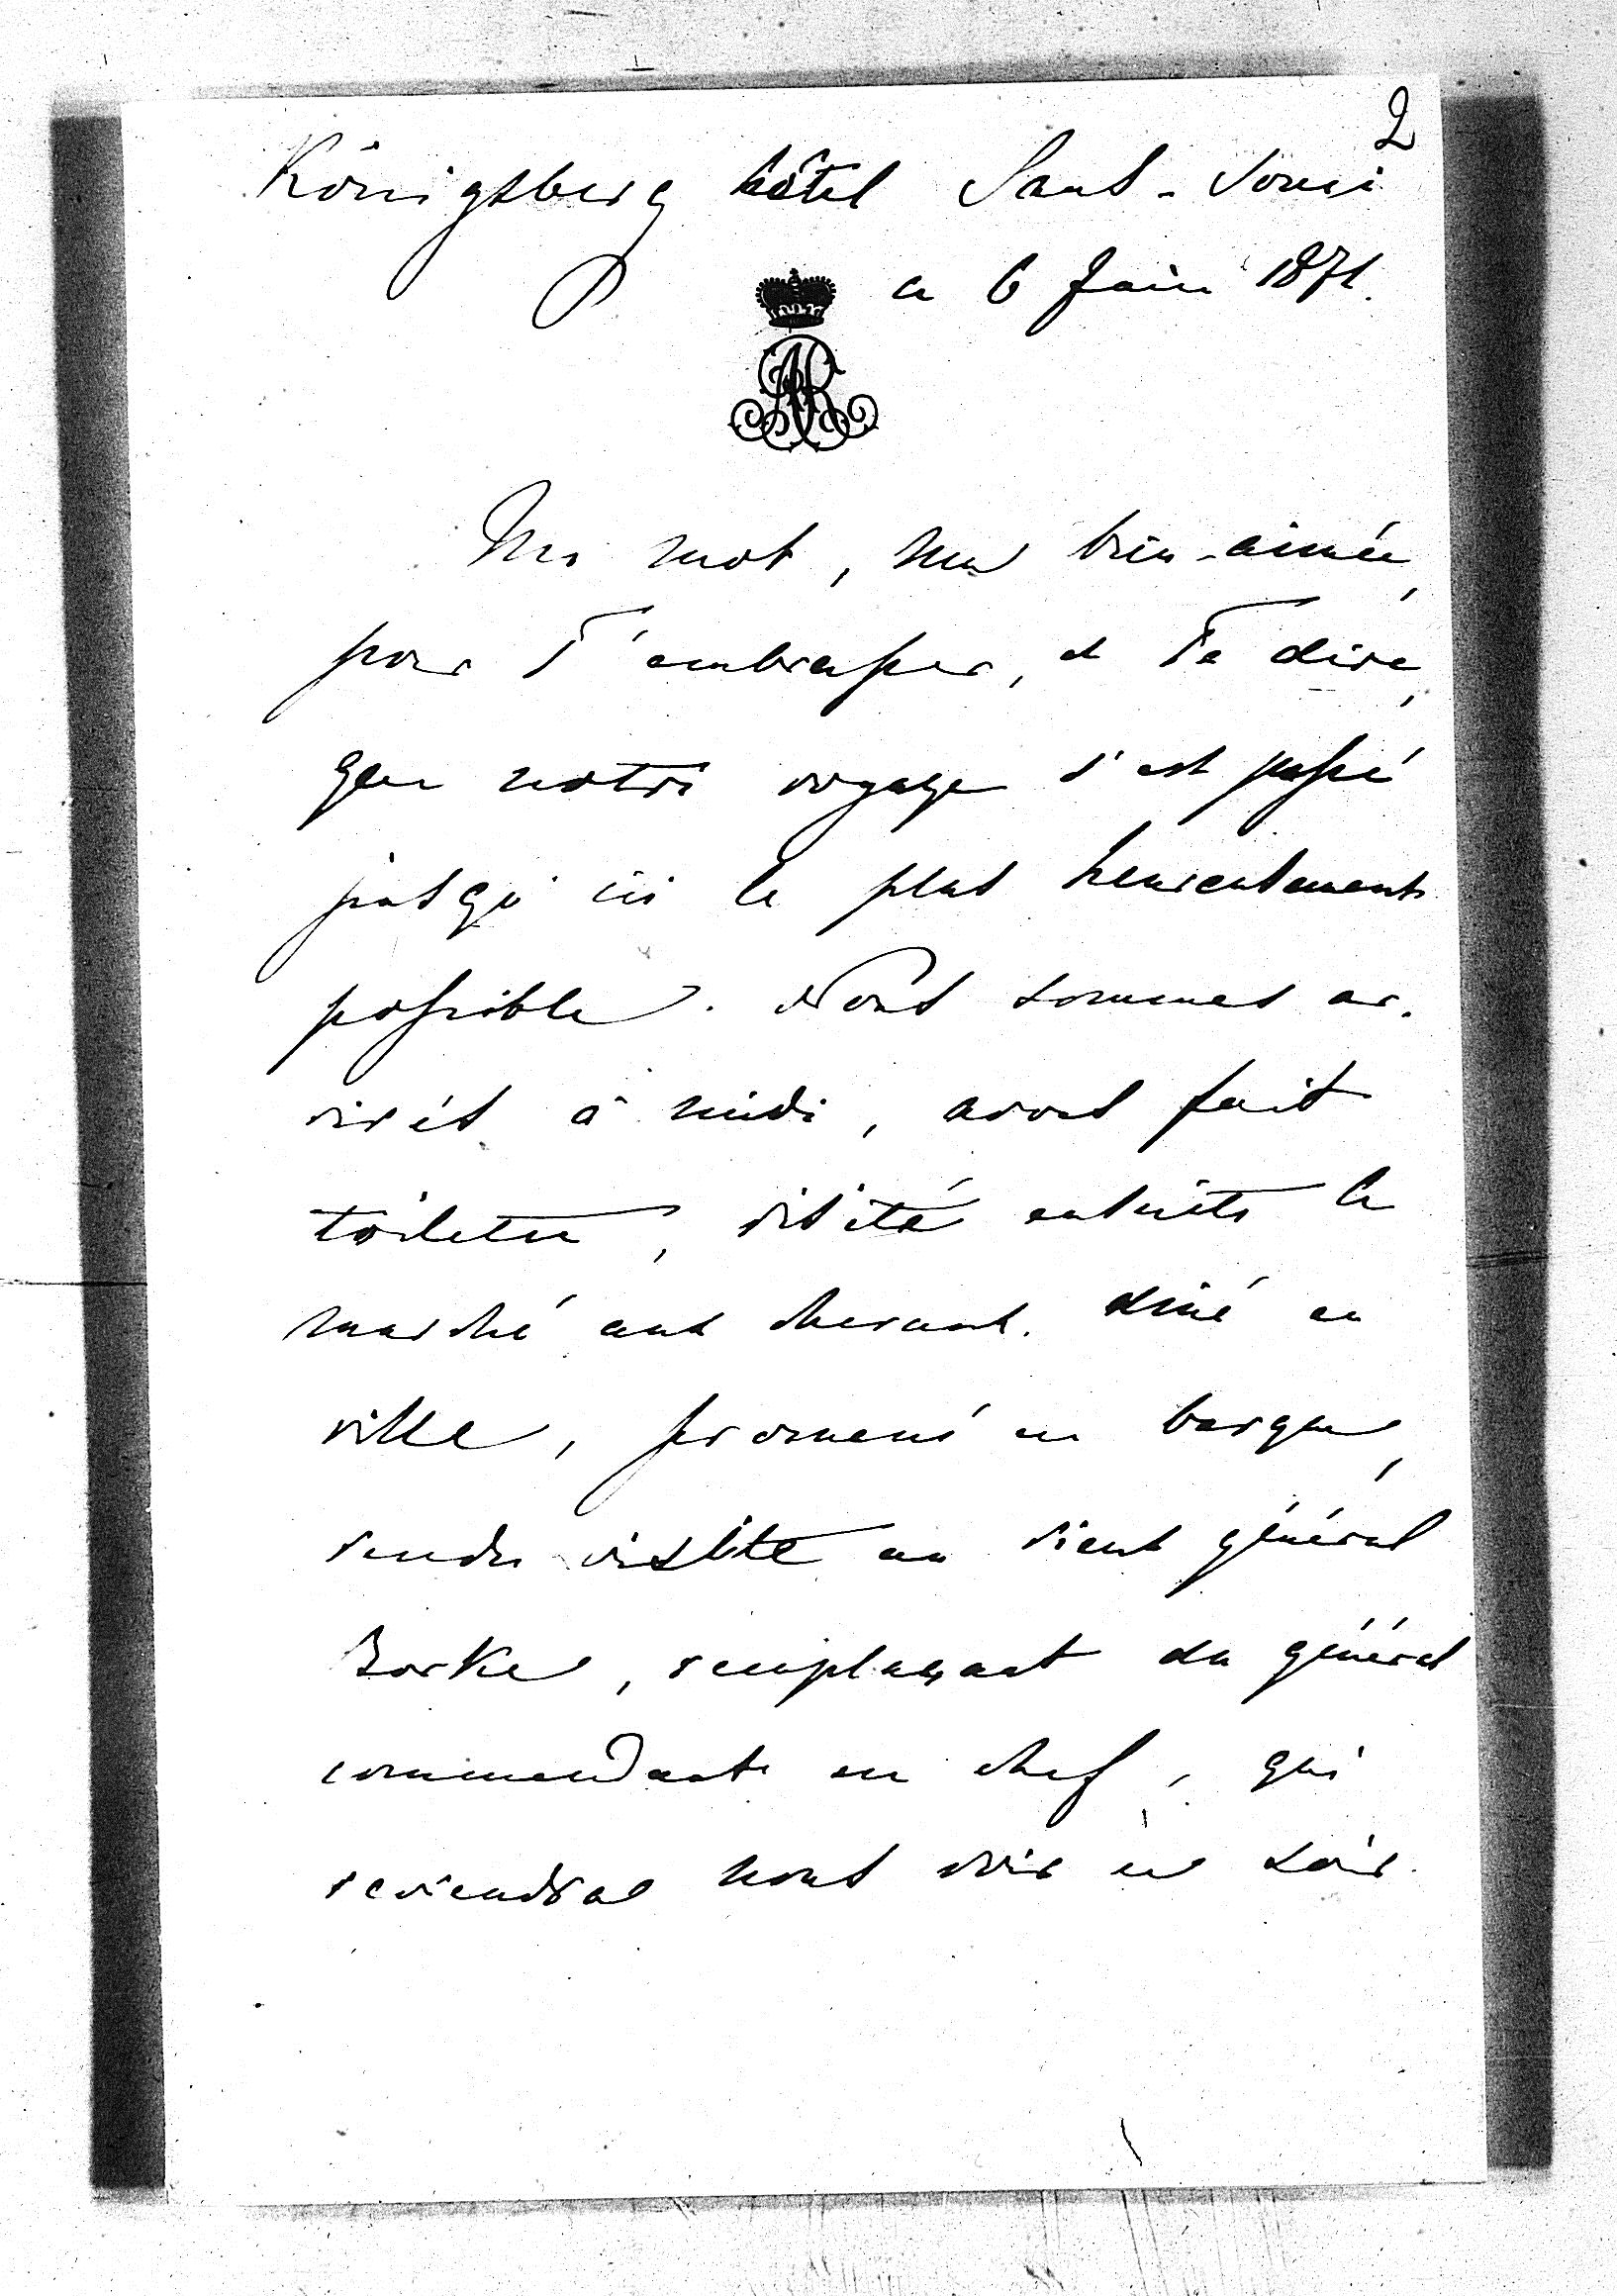 2
Königsberg hôtel Sans-Souci
ce 6 Juin 1871.
AR
Un mot, ma bien-aimée,
pour T'embrasser, et Te dire,
que notre voyage s'est passé
jusqu'ici le plus heureusement
possible. Nous sommes ar-
rivés à midi, avons fait
toilette, visité ensuite le
marché aux chevaux, diné en
ville, promené en barque,
rendu visite au vieux général
Borke, remplaçant du général
commandant en chef, qui
reviendra nous voir ce soir.